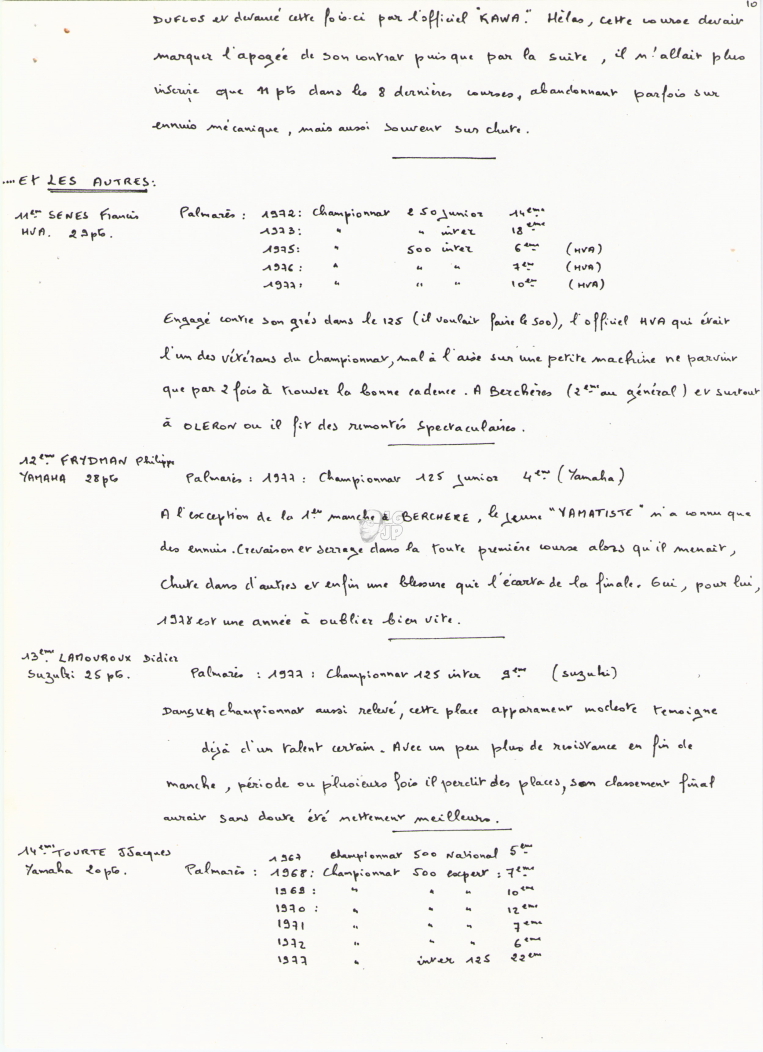 10
DUFLOS et devancé cette fois-ci par l'officiel "KAWA". Hélas, cette course devait
marquer l'apogée de son contrat puisque par la suite, il n'allait plus
inscrire que 11 pts dans les 8 dernières courses, abandonnant parfois sur
ennuis mécanique, mais aussi souvent sur chute.
....ET LES AUTRES:
11em SENES Francis
HVA. 29 pts.
Palmarès : 1972: Championnat 250 Junior 14eme
1973: " " inter 18eme
1975: " 500 inter 6eme (HVA)
1976: " " " 7eme (HVA)
1977: " " " 10em (HVA)
Engagé contre son grés dans le 125 (il voulait faire le 500), l'officiel HVA qui était
l'un des vétérans du championnat, mal à l'aise sur une petite machine ne parvint
que par 2 fois à trouver la bonne cadence. A Berchères (2eme au général) et surtout
à OLERON ou il fit des remontés spectaculaires.
12eme FRYDMAN Philippe
YAMAHA 28 pts
Palmarès : 1977 : Championnat 125 junior 4em (Yamaha)
A l'exception de la 1ere manche à BERCHERE, le jeune "YAMATISTE" n'a connu que
des ennuis. Crevaison et serrage dans la toute première course alors qu'il menait,
Chute dans d'autres et enfin une blessure qui l'écarta de la finale. Oui, pour lui,
1978 est une année à oublier bien vite.
13eme LAMOUROUX Didier
Suzuki 25 pts.
Palmarès : 1977 : Championnat 125 inter 9eme (suzuki)
Dans un championnat aussi relevé, cette place apparament modeste temoigne
déjà d'un talent certain. Avec un peu plus de resistance en fin de
manche, période ou plusieurs fois il perdit des places, son classement final
aurait sans doute été nettement meilleurs.
14eme TOURTE JJacques
Yamaha 20 pts.
1967 Championnat 500 National 5eme
Palmarès : 1968: Championnat 500 expert : 7eme
1969 : " " " 10eme
1970 : " " " 12eme
1971 " " " 7eme
1972 " " " 6eme
1977 " inter 125 22eme